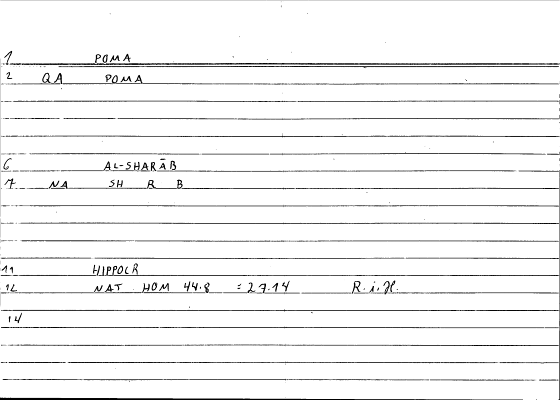 1 POMA
2 QA POMA
6 AL-SHARĀB
7 NA SH R B
11 HIPPOCR
12 NAT HOM 44.8 = 27.14 R.i.H.
14